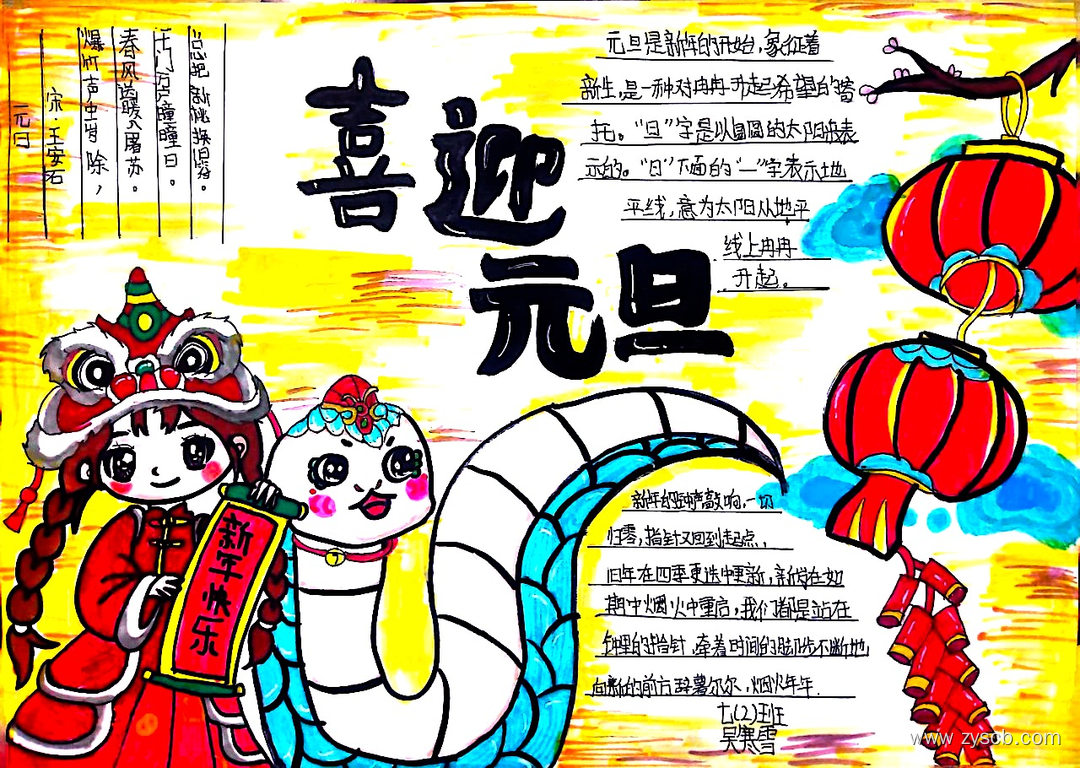 喜迎
元旦
元旦
宋·王安石
爆竹声中一岁除，
春风送暖入屠苏。
千门万户曈曈日。
总把新桃换旧符。
元旦是新年的开始，象征着
新生，是一种对冉冉升起希望的寄
托。“旦”字是以圆圆的太阳来表
示的。“日”下面的“一”字表示地
平线，意为太阳从地平
线上冉冉
升起。
新年快乐
新年的钟声敲响，一切
归零，指针又回到起点，
旧年在四季更迭中更新，新岁在如
期中烟火中重启，我们都是站在
钟里的指针，牵着时间的脚步不断地
向新的前方
烟火年年.
七(2)班
吴寒雪
www.zyscb.com